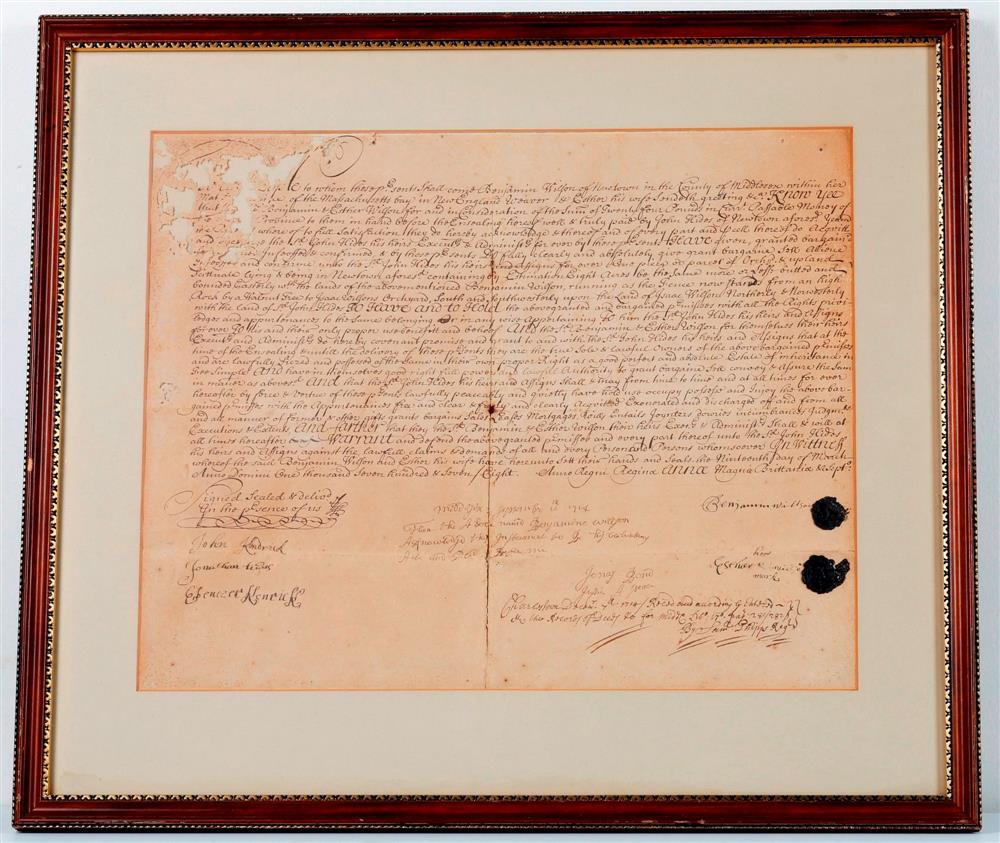 to whom these prsents Shall come Benjamin Wilson of Newtown in the County of Middlesex within her
of the Massachusetts bay in New England Weaver & Esther his wife Sendeth greeting &c Know Yee
that Benjamin & Esther Wilson for and in consideration of the Sum of Twenty four Pounds in Curat Passable Money of
Province to them in hand before the Ensealing hereof well & truly paid by John Hides of Newtown aforesd
where of to full Satisfaction they do hereby acknowledge & thereof and of every part and pcell there of do Acquitt
and the sd John Hides his heirs Executrs & Administrs for ever by these prsents Have given, granted bargain
Infeoffed & confirmed, & by these prsents Do fully clearly and absolutely give grant bargaine Sell Aliene
and confirme unto the sd John Hides his heirs and Assigns for ever One piece or parcel of Orchd & upland
Scittuate lying & being in Newtowl aforesd containing by Estimation Eight Acres be the same more or less butted and
bounded Easterly wth the lands of the abovementioned Benjamin Wilson, running as the Fence now Stands from an high
Rock by a Walnut Tree to Isaac Wilsons Orchyard, South and Southwesterly upon the Land of Isaac Wilson Northerly & Nowesterly
with the land of sd John Hides To Have and to Hold the abovegranted and bargained prmisses with all the Rights privi
ledges and appurtenances to the Same belonging or in any wise Appertaining to him the sd John Hides his heirs and Assigns
for ever To his and their only proper use benefitt and behoof And the sd Benjamin & Esther Wilson for themselves their heirs
Executrs and Administrs do hereby covenant promise and grant to and with the sd John Hides his heirs and Assigns that at the
time of the Ensealing & untill the delivery of these prsents they are the true Sole & lawfull Owners of the above bargained prmisses
and are lawfully Seized and possessed of the Same in their own proper Right as a good perfect and absolute Estate of inheritance in
Fee Simple And have in themselves good right full power and lawful Authority to grant bargaine Sell convey & Assure the Sam
in maner as abovesd And that the sd John Hides his heirs and Assigns Shall & may from time to time and at all times for ever
hereafter by force & vertue of these prsents lawfully peaceably and quietly have hold use occupy possess and Injoy the above bar-
gained prmisses with the Appurtenances free and clear and clearly Acquitted Exonerated and discharged of and from all
and all manner of former & other gifts grants bargains Sales Leases Mortgages Wills Entails Joynters dowries incumbrances Judgmts
Executions & Extents And farther that they the sd Benjamin & Esther Wilson their heirs Execrs & Administrs Shall & will at
all times hereafter Warrant and defend the abovegranted prmisses and every part thereof unto the sd John Hides
his heirs and Assigns against the lawfull claims & demands of all and every Person or Persons whomsoever In Wittness
whereof the said Benjamin Wilson and Esther his wife have hereunto Sett their hands and Seals the Nineteenth day of March
Anno Domini One thousand Seven hundred & Seven/Eight. Anno Regni Regina Anna Magna Brittania & Sept.
Signed Sealed & delivd
In the prsence of us
John Kendrick
Jonathan
Ebenezer Kenrick
Middlesex September
Then the above namd Benjamine Willson
Acknowledged the Instrument to be his voluntary
Act and Deed Before me
Jonas Bond
Justice of Peace
Benjamin Willson
her
Esther
mark
Charlestown Recorded according
& the Records of Deeds &c for Middx Lib. 17
By Saml Phipps Regr